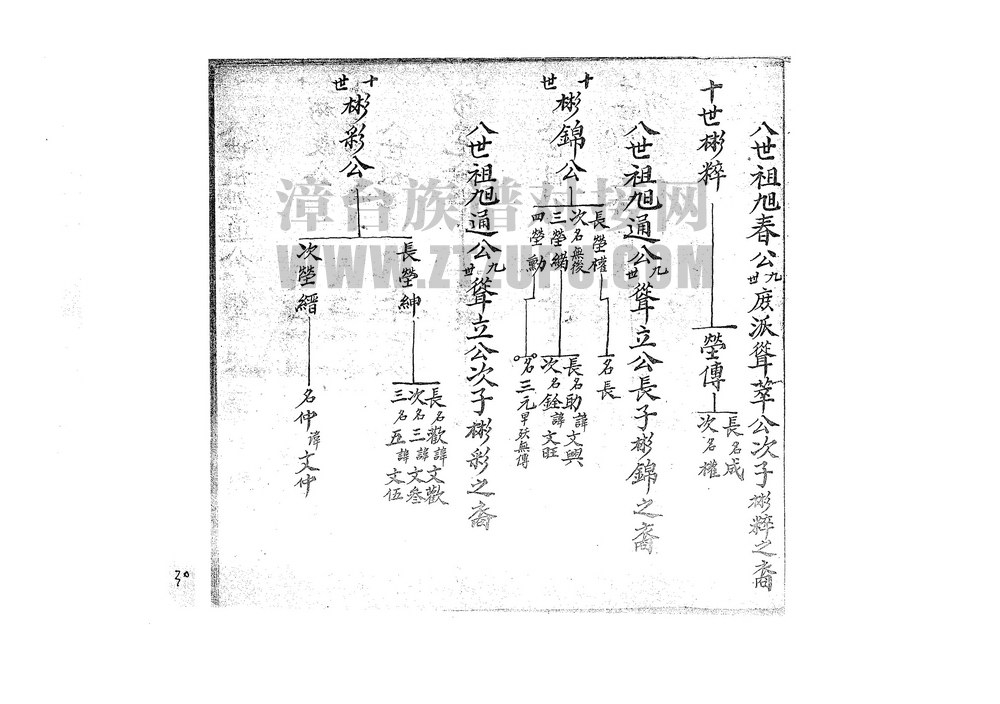 八世祖旭春公九世庶派聳萃公次子彬粹之裔
十世彬粹
瑩傳
長名成
次名權
八世祖旭通公九世聳立公長子彬錦之裔
十世彬錦公
長瑩權
次名無後
三瑩縎
四瑩勳
名長
長名助諱文興
次名銓諱文旺
名三元早殀無傳
八世祖旭通公九世聳立公次子彬彩之裔
十世彬彩公
長瑩紳
次瑩縉
長名歡諱文歡
次名三諱文叄
三名五諱文伍
名仲諱文仲
30
漳台族谱对接网
WWW.ZTZUPU.COM